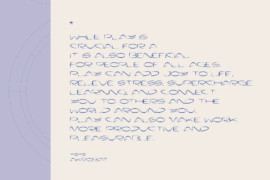 WHILE PLAY IS
CRUCIAL FOR A
IT IS ALSO BENEFICIAL
FOR PEOPLE OF ALL AGES.
PLAY CAN ADD JOY TO LIFE,
RELIEVE STRESS, SUPERCHARGE
LEARNING, AND CONNECT
YOU TO OTHERS AND THE
WORLD AROUND YOU.
PLAY CAN ALSO MAKE WORK
MORE PRODUCTIVE AND
PLEASURABLE.